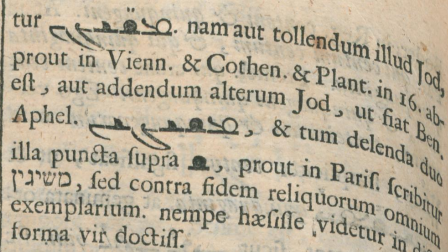 tur . nam aut tollendum illud Jod,
prout in Vienn. & Cothen. & Plant. in 16. ab-
est, aut addendum alterum Jod, ut fiat Ben
Aphel. , & tum delenda duo
illa puncta supra , prout in Paris. scribitur
משיגין, sed contra fidem reliquorum omnium
exemplarium. nempe hæsisse videtur in
forma vir doctiss.